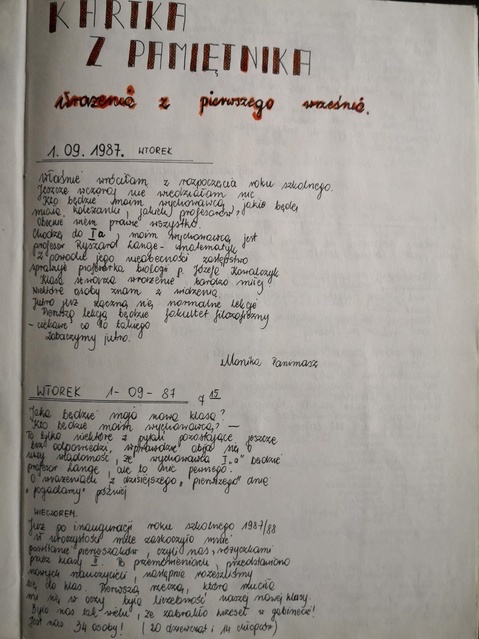 KARTKA
Z PAMIĘTNIKA
Wrażenia z pierwszego września.
1.09.1987. WTOREK
Właśnie wróciłam z rozpoczęcia roku szkolnego.
Jeszcze wczoraj nie wiedziałam nic
Kto będzie moim wychowawcą, jakie będę
miała koleżanki, jakich profesorów?
Obecnie wiem prawie wszystko.
Chodzę do Ia, moim wychowawcą jest
profesor Ryszard Lange - matematyk
Z powodu jego nieobecności zastępstwo
sprawuje profesorka biologii p. Józefa Kowalczyk
Klasa stwarza wrażenie bardzo miłej
niektóre osoby znam z widzenia.
Jutro już zaczną się normalne lekcje
Pierwszą lekcją będzie fakultet filozoficzny
- ciekawe co to takiego
Zobaczymy jutro.
Monika
WTOREK 1-09-87 15
Jaka będzie moja nowa klasa?
Kto będzie moim wychowawcą? —
To tylko niektóre z pytań pozostające jeszcze
bez odpowiedzi, wprawdzie obiła mi się o
uszy wiadomość, że wychowawcą I„a" będzie
profesor Lange, ale to nic pewnego.
O wrażeniach z dzisiejszego „pierwszego" dnia
pogadamy później
WIECZOREM.
Już po inauguracji roku szkolnego 1987/88
W uroczystości mile zaskoczyło mnie
powitanie pierwszaków, czyli nas, różyczkami
przez klasy II. Po przemówieniach, przedstawiono
nowych nauczycieli, następnie rozeszliśmy
się do klas. Pierwszą rzeczą, która rzuciła
mi się w oczy była liczebność naszej nowej klasy.
Było nas tak wielu, że zabrakło krzeseł w gabinecie!
Jest nas 34 osoby! (20 dziewcząt i 14 chłopców)